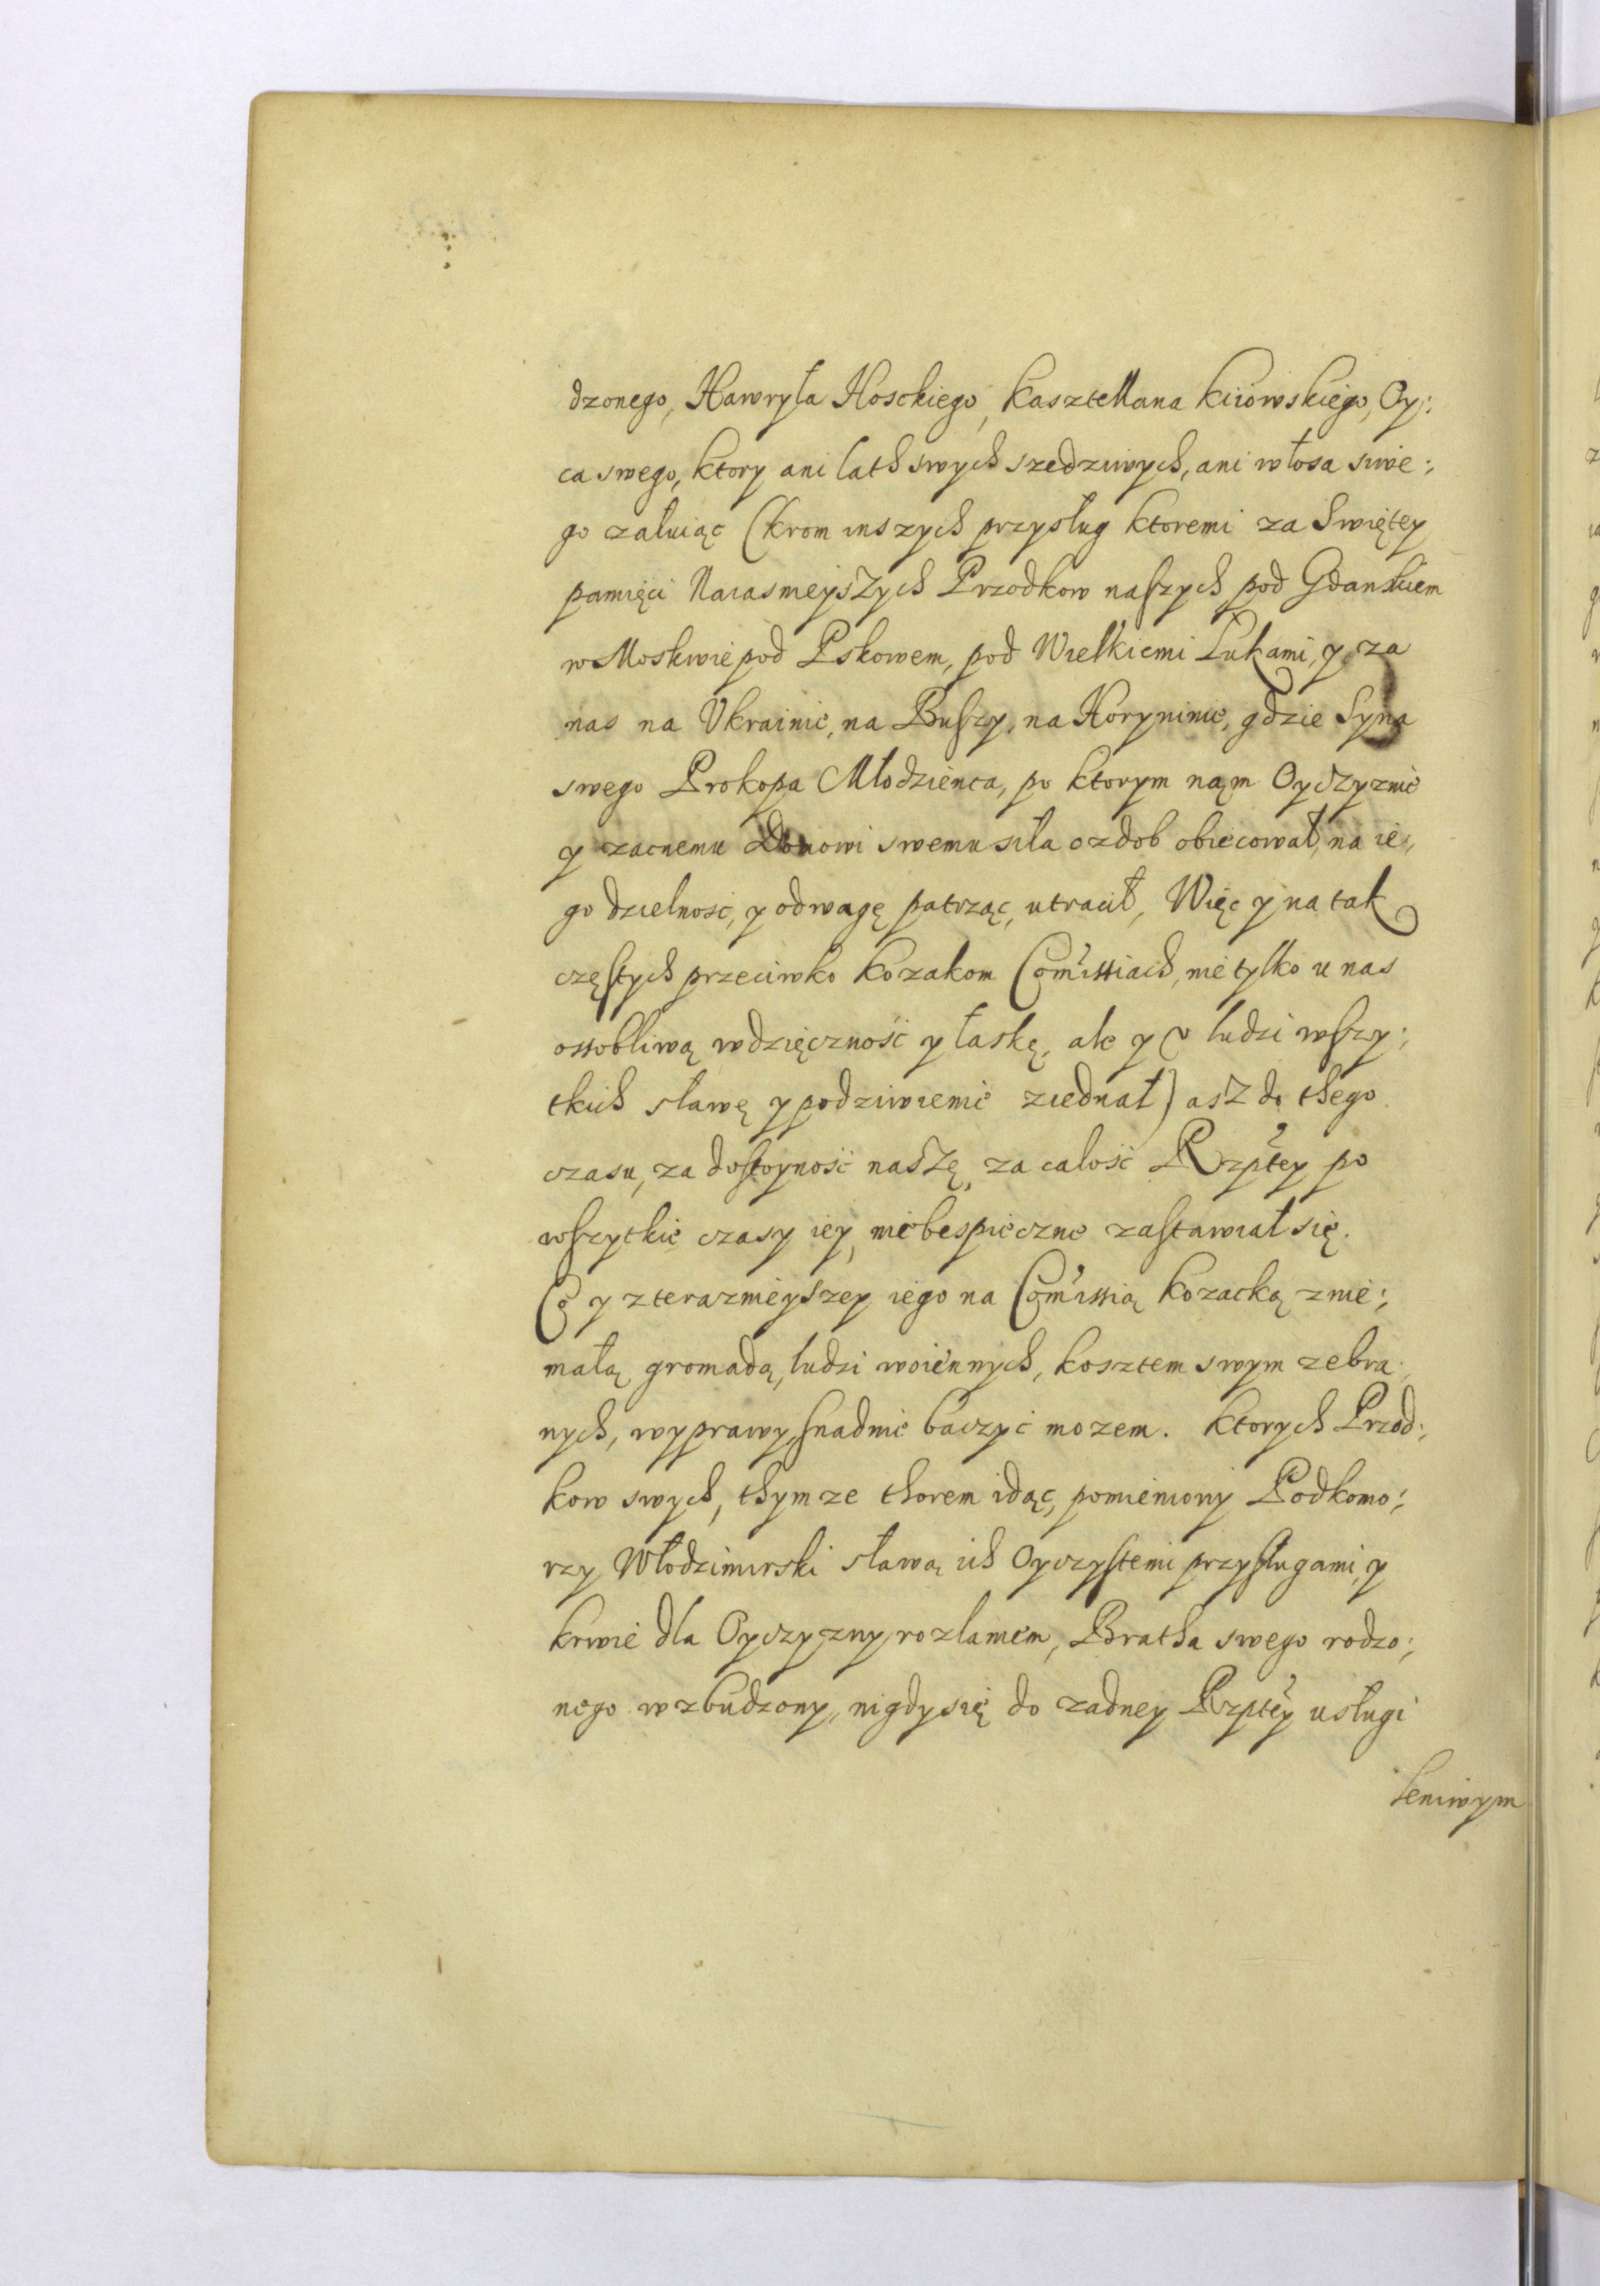 dzonego, Hawryła Hosckiego, kasztellana kiiowskiego, Oy:
ca swego, ktory ani lath swych szedziwych, ani włosa siwe:
go załuiąc (krom inszych przysług ktoremi za Swiętey
pamięci Naiasnieyszych Przodkow naszych pod Gdanskiem
w Moskwie pod Pskowem, pod Wielkiemi Lukami, y za
nas na Vkrainie, na Buszy, na Horyninie, gdzie Syna
swego Prokopa Młodzienca, po ktorym nąm Oyczyznie
y zacnemu Domowi swemu siła ozdob obiecował, na ie,
go dzielnosc, y odwagę patrząc, utracił, Więc y na tak
częstych przeciwko kozakom Commissiach, nie tylko u nas
ossobliwą wdzięcznosc y łaskę, ale y v ludzi wszy:
tkich sławę y podziwienie ziednał) asz do thego
czasu, za dostoynosc naszę, za calosc Rzptey po
wszytkie czasy iey, niebespieczne zastawiał się.
Co y z terazmieyszey iego na Commissią kozacką z nie:
małą gromadą, ludzi woiennych, kosztem swym zebra:
nych, wyprawy, snadnie baczyc mozem. ktorych Przod:
kow swych, thymze thorem idąc, pomieniony Podkomo:
rzy Włodzimirski sławą ich Oyczystemi przysługami, y
krwie dla Oyczyzny rozlaniem, Bratha swego rodzo:
nego wzbudzony, nigdy się do zadney Rzptey usługi
leniwym